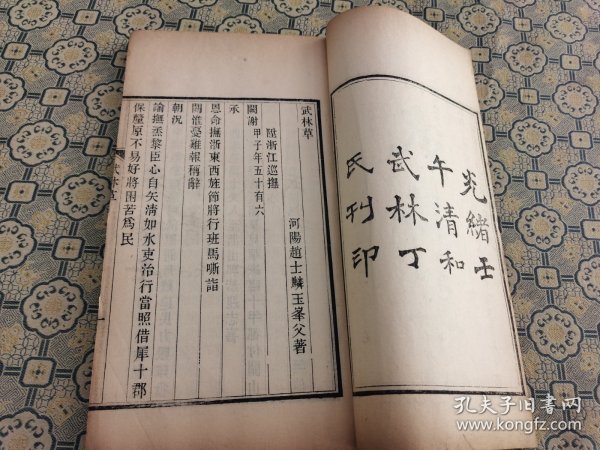 光緒壬
午清和
武林丁
氏刊印
武林草
河陽趙士麟玉峯父著
陞浙江巡撫
闕謝甲子年五十有六
承
恩命撫浙東西旌節將行班馬嘶詣
闕惟憂難報稱辭
朝況
諭撫烝黎臣心自矢淸如水吏治行當照借犀十郡
保釐原不易好將困苦爲民
武林草
孔夫子旧书网
www.kongfz.com